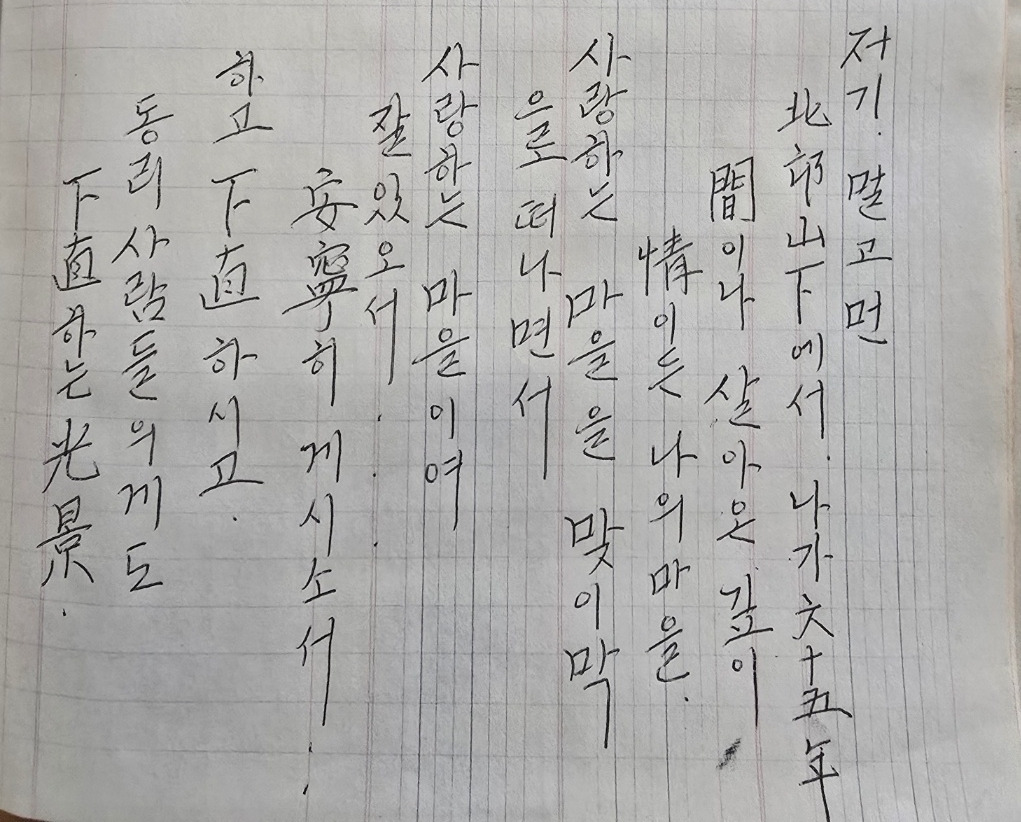 저기. 멀고 먼
北邙山下에서. 나가 六十五年
間이나 살아온 깊이
情이든 나의 마을.
사랑하는 마을을 맞이막
으로 떠나면서
사랑하는 마을이여
잘 있오서. . .
安寧히 게시소서. .
하고 下直하시고.
동리 사람들의게도
下直하는 光景.